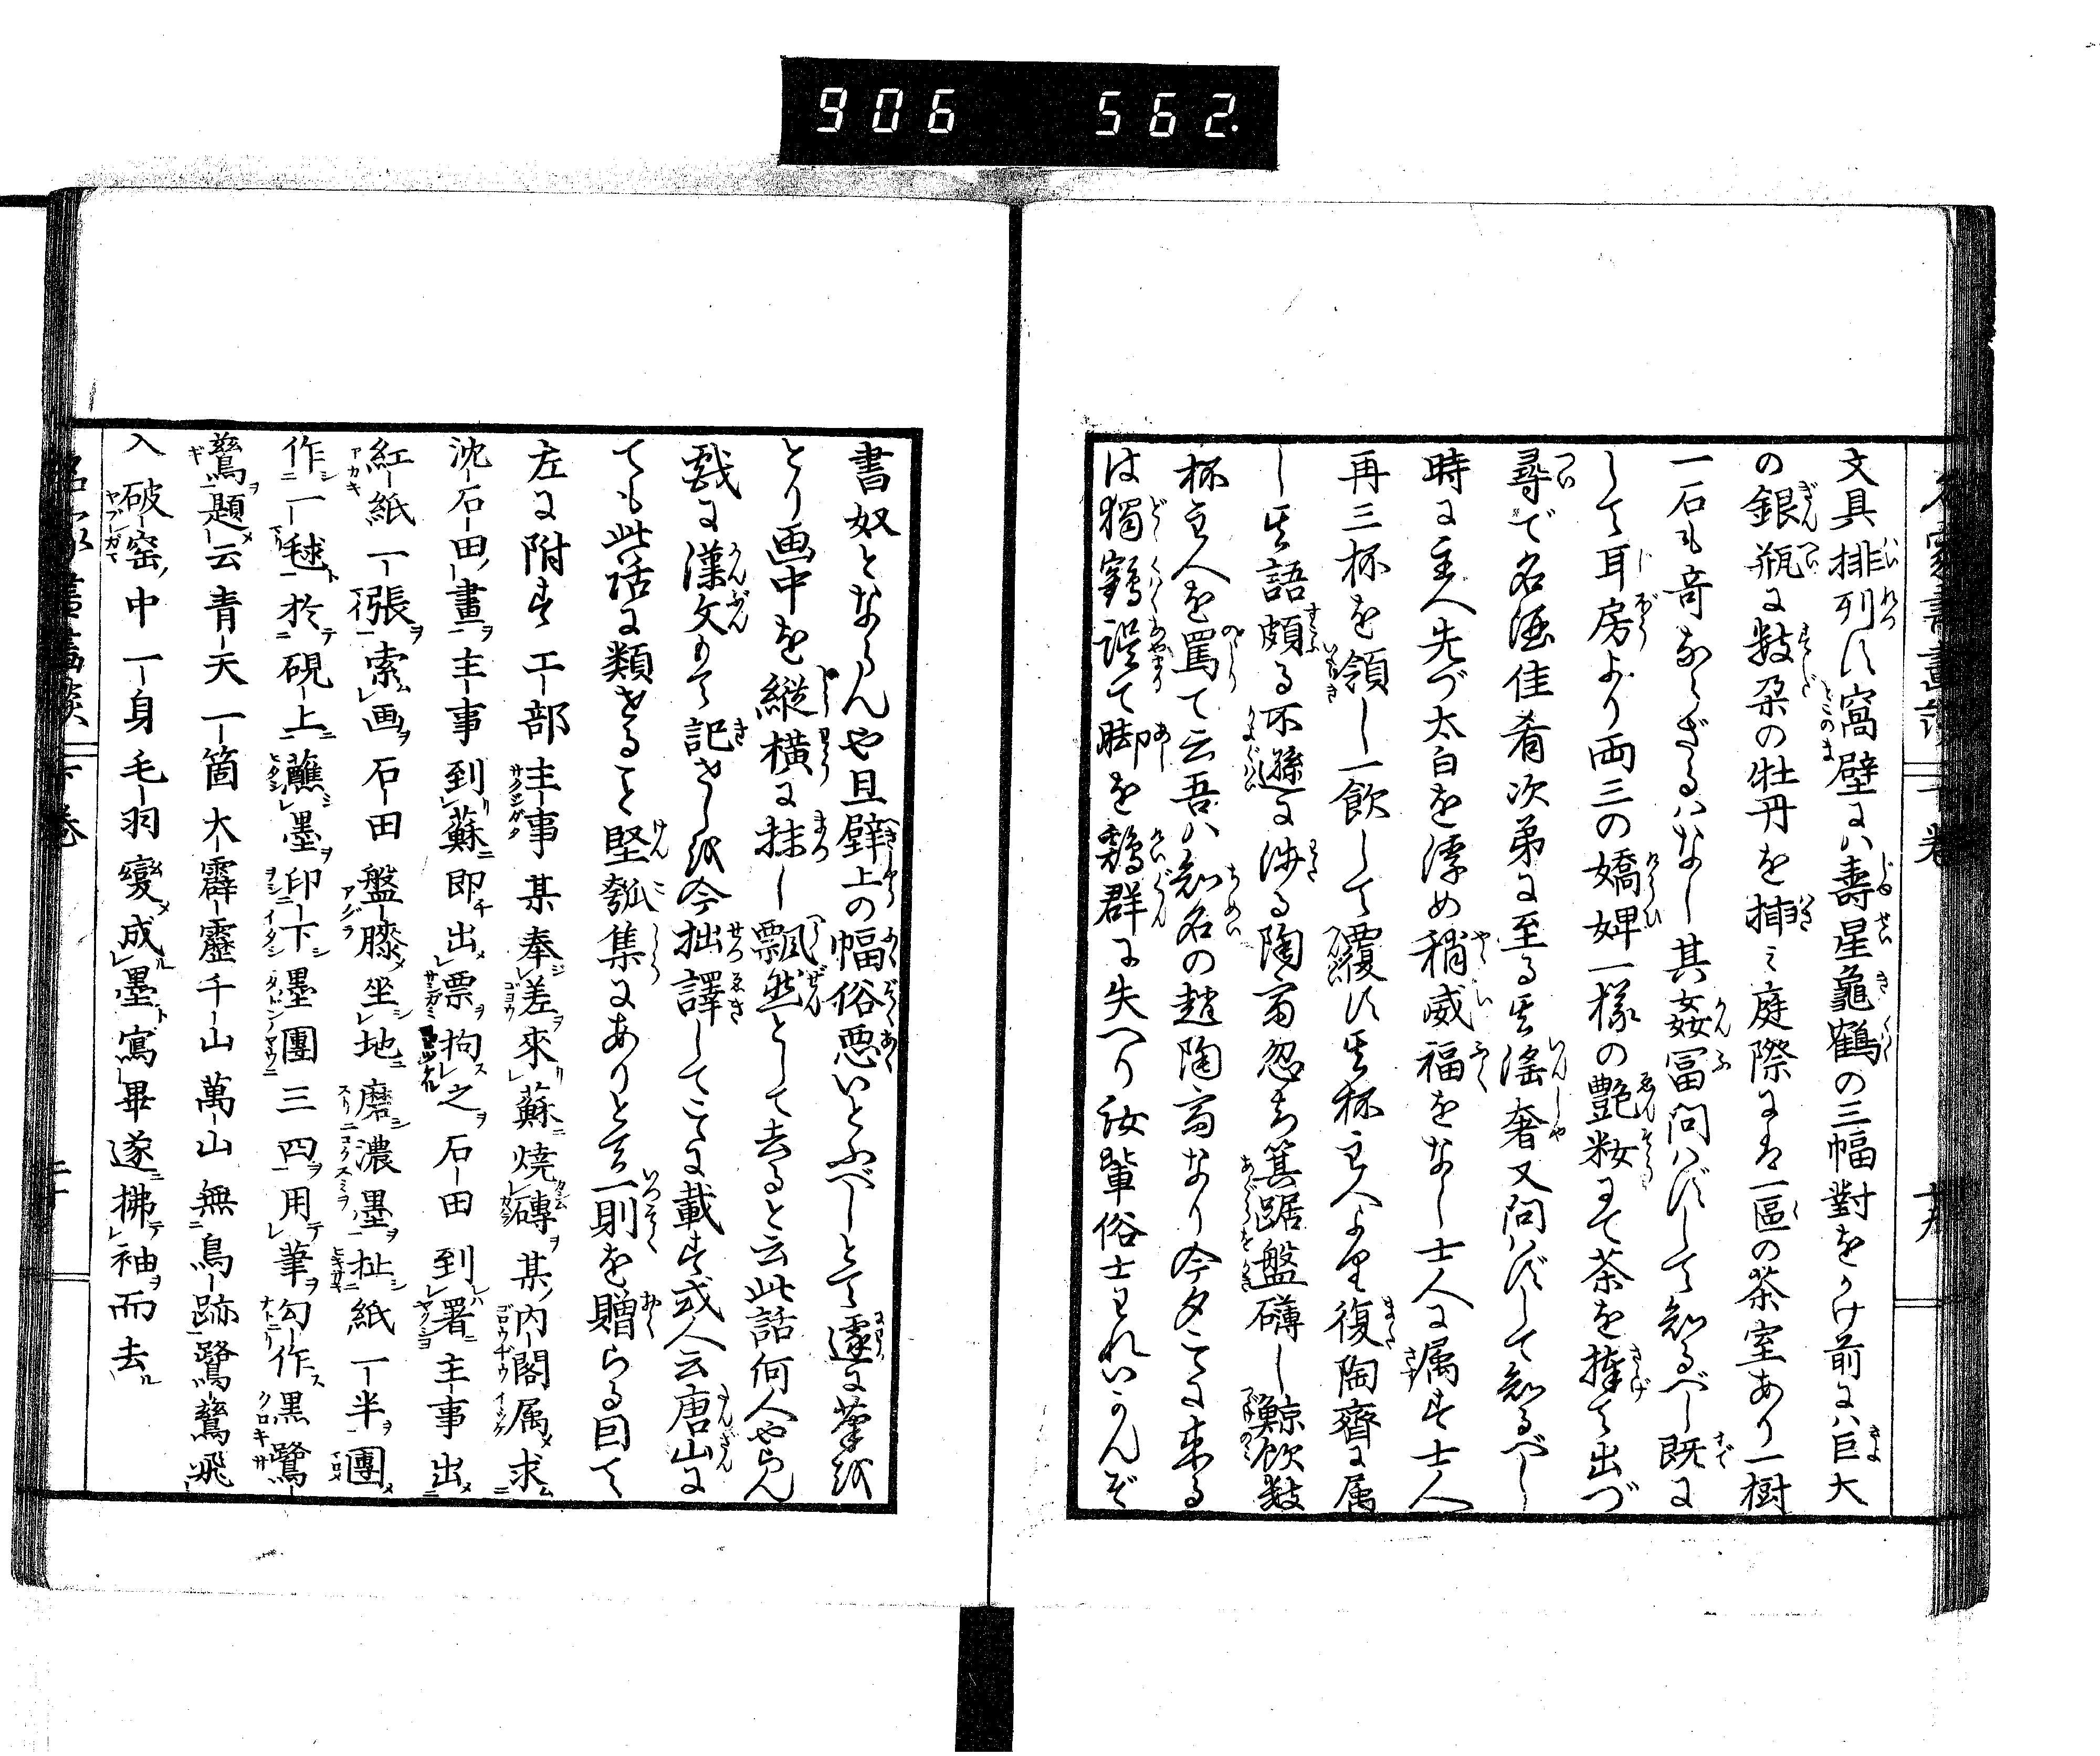 906 562.
文具排列す窩壁には壽星龜鶴の三幅對をかけ前には巨大
の銀瓶に数朶の牡丹を挿み庭際には一區の茶室あり一樹
一石も奇ならざるはなし其姦冨問はずして知るべし既に
して耳房より両三の嬌婢一様の艶粧にて茶を捧て出づ
尋で名酒佳肴次第に至る其滛奢又問はずして知るべし
時に主人先づ太白を浮め稍威福をなし士人に属す士人
再三杯を領し一飲して覆す其杯主人より復陶齋に属
し其語頗る不遜に渉る陶齋忽ち箕踞盤礴し鯨飲数
杯主人を罵て云吾は知名の趙陶齋なり今夕こゝに来る
は獨鶴誤て脚を鷄群に失へり汝輩俗士われいかんぞ
書奴とならんや且壁上の幅俗悪いとふべしとて遽に筆を
とり画中を縦横に抹し飄然として去ると云此話何人やらん
戯に漢文もて記せしを今拙譯してこゝに載す或人云唐山に
ても此话に類せること堅瓠集にありとて一則を贈らる因て
左に附す工部主事某奉差來蘇燒磚某内閣属求
沈石田畫主事到蘇即出票拘之石田到署主事出
紅紙一張索画石田盤膝坐地磨濃墨扯紙一半團
作一毬於硯上蘸墨印下墨團三四用筆勾作黒鷺
鷥題云青天一箇大霹靂千山萬山無鳥跡鷺鷥飛
入破窑中一身毛羽變成墨寫畢遂拂袖而去